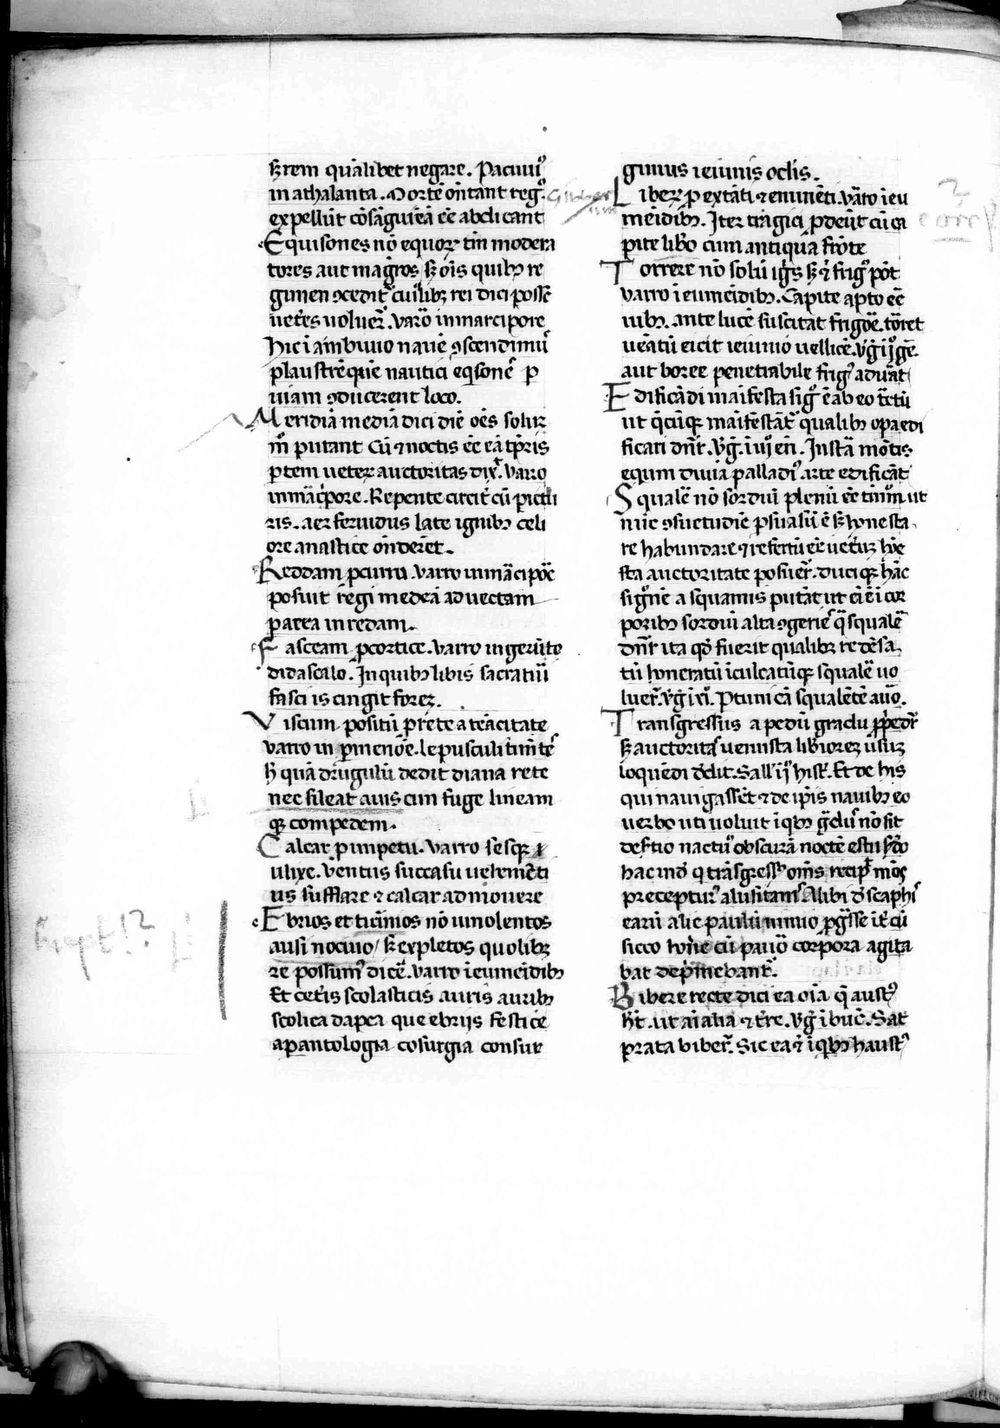 s; rem qualibet negare. Pacuui⁹
in athalanta. Mortē oītant reg⁹.
expellūt cōsāguīea eē abdicant
Equisones nō equoꝝ tm̄ modera
tores aut magr̄os s; oīs quibꝫ re
gimen ꝯcedit᷑ cuiꝰlibꝫ rei dici posse
uet̄es uoluer̄. Varo in marcipore
Hic ī ambiuio nauē ꝯscendimꝰ
plaustrēque nautici eqisonē ꝑ
uiam ꝯducerent loco.
Meridiā mediā dici diē oēs solūz
m̄ putant Cū ⁊ noctis eē eā tp̄ris
ꝑtem uetez auctoritas dix̄. Varro
in mācipore. Repente circit̄ cū pictu
ris. aer feruidus late ignibꝫ celi
ore anastice ōnderet.
Reddam ꝑcurru. Varro in mācipoē
posuit regi medeā aduectam
partea in redam.
Fasceam ꝑcortice. Varro in gerūto
didascalo. In quibꝫ libis sacratiū
fasci is cingit forez.
Viscum positū ꝑrete a teācitate
Varro in ꝑmenōe. lepusculi timētes
hꝰ quā drugulū dedit diana rete
nec sileat auis cim fuge lineam
qꝫ compedem.
Calcar ꝑ impetu. Varro sesqꝫ
ulixe. Ventus succasu uehemēti
us sufflare ⁊ calcar admouere
Ebrios et ticīmos nō uinolentos
ausi nociuo/ s; expletos quolibꝫ
re possumꝰ dicē. Varro ī eumeīdibꝫ
Et cet̄is scolasticis auris auribꝫ
scolica dapea que ebriis festice
apantologia cosurgia consur
gimus ieiunis oclis.
Liberꝫ ꝑ extāti ⁊ eminēti. Varo ī eu
meīdibꝫ. Iter tragici ꝓdeūt cū ca
pite libro cum antiqua frōte
Torrere nō solū igīs s; ⁊ frigꝰ pōt
Varro ī eumeīdibꝫ. Capite apto eē
iubꝫ. ante lucē suscitat frigōe. torret
ueātū eicit ieiunio uellicē. vg̃ ī ij⁰ ge.
aut boree penetrabile frigꝰ aduāt
Edificādi maīfesta sigꝰ ē ab eo tectū
ut qcūqꝫ maīfestāt᷑ qualibꝫ opa edi
ficari dnr̄. vg̃. ī ij⁰ en̄. Instā mōtis
equm diuīa palladiꝰ arte edificāt
Squalē nō sordiū plenū eē tmmō ut
nūc ꝯsuetudīe ꝑsuasū ē s; honesta
re habundare. ⁊ refertū eē uet̄uz hōe
sta auctoritate posuer̄. duciqꝫ hāc
sigōnē a squamis putāt ut cī ē ī cor
poribꝫ sordiū alta ꝯgeries qꝫ squalē
dnr̄ ita qd̄ fuerit qualibꝫ re dēsa
tū honeratū īculcatūqꝫ squalē uo
luer̄. vg̃ ī xi. Ptimi cā squalētē auo.
Transgressus a pedū gradu ꝓpedr̄
s; auctoritas uenusta libiorez usuz
loquēdi dedit. Sall ij hist̄. Et de his
qui nauigasset ⁊ de ipīs nauibꝫ eo
uerbo uti uoluit ī qbꝫ gdꝰ nō fit
defitio nactuꝰ obscurā noctē estu scdo
hac ind q trāsgressꝰ omīs recipīt mōx
preceptur alusitanis Alibi d scaphis
earū alie paulū nimio ꝓgsse ir̄ cū
sicco honīe cū pauō corpora agita
bat deprimebant᷑.
Bibere recte dici ea oīa q austū
ht̄. ut aīalia ⁊ tr̄re. vg̃ ī buc̄. Sat
prata biber̄. Sic ea ⁊ ī qbꝫ haustꝰ